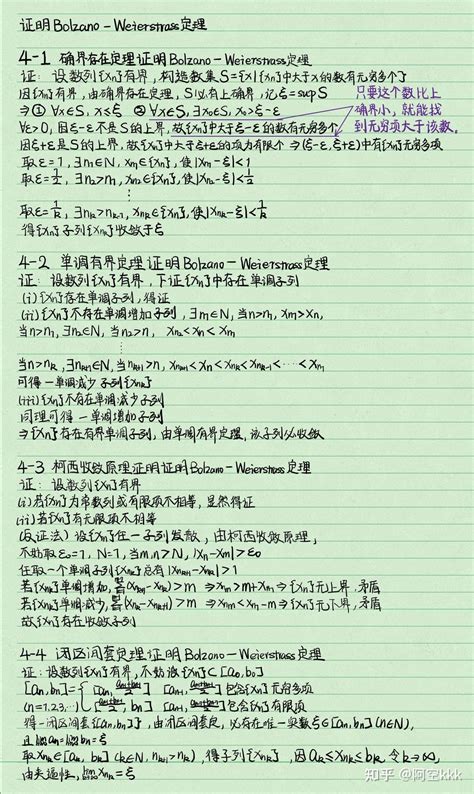 证明Bolzano-Weierstrass定理
4-1 确界存在定理证明Bolzano-Weierstrass定理
证：设数列{xn}有界，构造数集S={x|{xn}中大于x的数有无穷多个}
因{xn}有界，由确界存在定理，S必有上确界，记ξ=supS
⇒① ∀x∈S, x≤ξ ② ∀x∈S, ∃x0∈S, x0>ξ-ε
只要这个数比上
确界小，就能找
到无穷项大于该数。
∀ε>0，因ξ-ε不是S的上界，故{xn}中大于ξ-ε的数有无穷多个
因ξ+ε是S的上界，故{xn}中大于ξ+ε的项为有限个⇒(ξ-ε,ξ+ε)中有{xn}无穷多项
取ε=1, ∃n1∈N, xn1∈{xn}, 使|xn1-ξ|<1
取ε=1/2, ∃n2>n1, xn2∈{xn}, 使|xn2-ξ|<1/2
⋮
取ε=1/k, ∃nk>nk-1, xnk∈{xn}, 使|xnk-ξ|<1/k
得{xn}子列{xnk}收敛于ξ
4-2 单调有界定理证明Bolzano-Weierstrass定理
证：设数列{xn}有界，下证{xn}中存在单调子列
(i){xn}存在单调子列，得证
(ii){xn}不存在单调增加子列，∃n1∈N, 当n>n1, xn1>xn,
当n>n1, ∃n2∈N, 当n2>n1, xn2<xn<xn1
⋮
当n>nk, ∃nk+1∈N, 当nk+1>n, xnk+1<xn<xnk<xnk-1<…<xn1
可得一单调减少子列{xnk}
(iii){xn}不存在单调减少子列
同理可得一单调增加子列
⇒{xn}存在有界单调子列，由单调有界定理，该子列必收敛
4-3 柯西收敛原理证明证明Bolzano-Weierstrass定理
证：设数列{xn}有界
(i)若{xn}为常数列或有限项不相等，显然得证
(ii)若{xn}有无限项不相等
(反证法) 设{xn}任一子列发散，由柯西收敛原理，
不妨取ε0=1, N=1, 当m,n>N, |xn-xm|>ε0
任取一个单调子列{xnk}总有|xnk-xnk-1|>1
若{xnk}单调增加, (xnk+1-xnk)>m ⇒xnm>m+xn1⇒{xn}无上界，矛盾
若{xnk}单调减少, (xnk-xnk+1)>m ⇒xnm<xn1-m⇒{xn}无下界，矛盾
故{xn}存在收敛子列
4-4 闭区间套定理证明Bolzano-Weierstrass定理
证：设数列{xn}有界，不妨设{xn}⊂[a0,b0]
[an,bn]= 包含{xn}无穷多项
(n=1,2,3…) 包含{xn}有限项
得一闭区间套{[an,bn]}，由闭区间套定，必存在唯一实数ξ∈[an,bn](n∈N),
且lim an=lim bn=ξ
取xnk∈[ak,bk](k∈N, nk+1>nk)，得子列{xnk}，因ak≤xnk≤bk，令k→∞,
由夹逼性, lim xnk=ξ
知乎 @阿空kkk